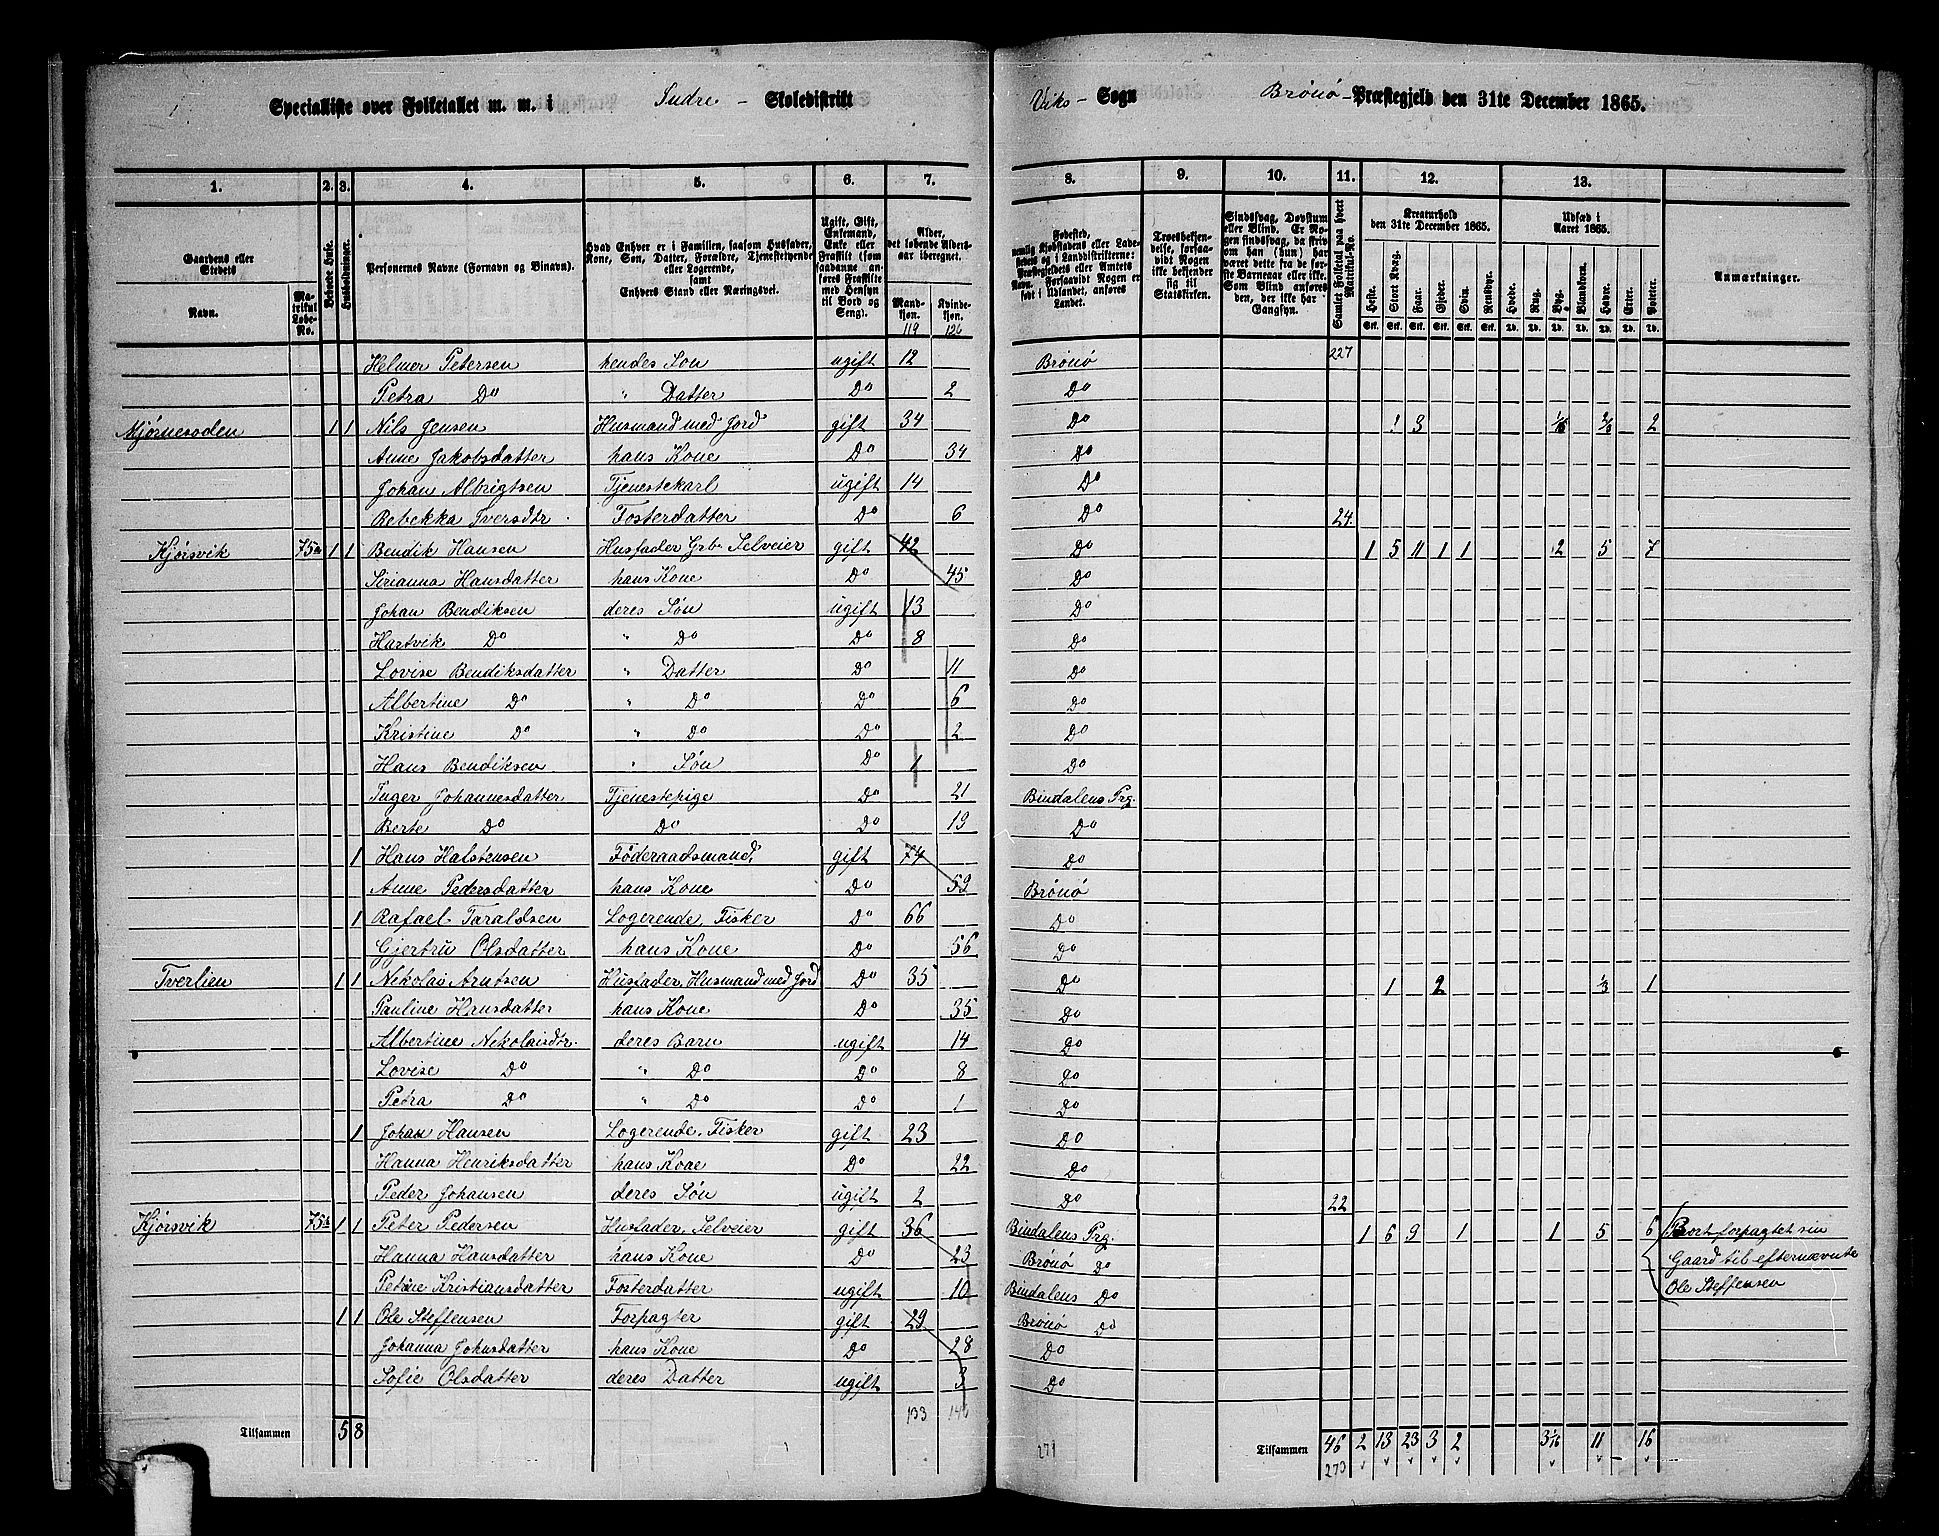 Specialliste over Folketallet m. m. i Søndre - Skoledistrikt Viks - Sogn Brønø - Præstegjeld den 31te December 1865.
1. 2. 3. 4. 5. 6. 7. 8. 9. 10. 11. 12. 13.
Gaardens eller Stedets Navn. Matrikul Løbe-No. Beboede Huse. Husholdninger. Personernes Navne (Fornavn og Binavn).
Hvad Enhver er i Familien, saasom Husfader, Kone, Søn, Datter, Forældre, Tjenestetyende eller Logerende, samt Enhvers Stand eller Næringsvei.
Ugift, Gift, Enkemand, Enke eller Fraskilt (som saadanne anføres Fraskilte med Hensyn til Bord og Seng).
Alder, det løbende Aldersaar iberegnet. Mandkjøn. Kvindekjøn. 119 126
Anmærkninger.
Kreaturhold den 31te December 1865. Heste. Stort Kvæg. Faar. Gjeder. Svin. Rensdyr.
Udsæd i Aaret 1865. Hvede. Rug. Byg. Blandkorn. Havre. Erter. Poteter.
Helmer Petersen hendes Søn ugift 12 Brønø 227
Petra Do " Datter Do 2 Do
Nils Jensen Husmand med Jord gift 34 Do 1 3 2
Anne Jakobsdatter hans Kone Do 34 Do
Johan Albrigtsen Tjenestekarl ugift 14 Do
Rebekka Iversdtr. Fosterdatter Do 6 Do 24.
Kjørsvik 75a 1 1 Bendik Hansen Husfader Grb. Selveier gift 42 Do 1 5 11 1 1 2 5 7
Sirianna Hansdatter hans Kone Do 45 Do
Johan Bendiksen deres Søn ugift 13 Do
Hartvik Do " Do Do 8 Do
Lovise Bendiksdatter " Datter Do 11 Do
Albertine Do " Do Do 6 Do
Kristine Do " Do Do 2 Do
Hans Bendiksen " Søn Do 1 Do
Inger Johannesdatter Tjenestepige Do 21 Bindalens Prg.
Berte Do Do Do 19 Do
1 Hans Halstensen Føderaadsmand, gift 74 Do
Anne Pedersdatter hans Kone Do 59 Brønø
1 Rafael Taraldsen Logerende, Fisker Do 66 Do
Gjertru Olsdatter hans Kone Do 56 Do
Tverlien 1 1 Nikolai Arntsen Husfader, Husmand med Jord Do 35 Do 1 2 1/3 1
Pauline Hansdatter hans Kone Do 35 Do
Albertine Nikolaisdtr. deres Barn ugift 14 Do
Lovise Do " Do Do 8 Do
Petra Do " Do Do 1 Do
1 Johan Hansen Logerende, Fisker gift 23 Do
Hanna Henriksdatter hans Kone Do 22 Do
Peder Johansen deres Søn ugift 2 Do 22
Kjørsvik 75b 1 1 Peter Pedersen Husfader, Selveier gift 36 Bindalens Prg. 1 6 9 1 1 5 6 Bortforpagtet sin
Hanna Hansdatter hans Kone Do 23 Brønø Do Gaard til efternævnte
Petrine Kristiansdatter Fosterdatter ugift 10 Bindalens Do Ole Steffensen
1 1 Ole Steffensen Forpagter gift 29 Brønø Do
Johanna Johnsdatter hans Kone Do 28 Do
Sofie Olsdatter deres Datter ugift 3 Do
133 146
Tilsammen 5 8 271 Tilsammen 46 2 13 23 3 2 11 16
273